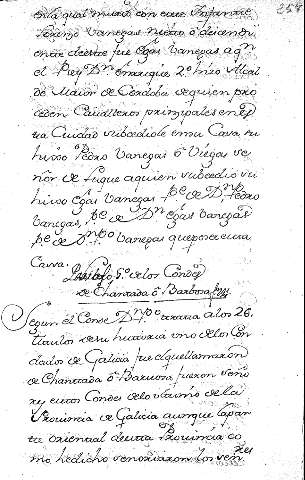 258
en la qual murio con este Infante
Lorenzo Vanegas nieto o decendi
ente de este fue Egas Vanegas aqn
el Rey Dn enrrique 2º hizo Alcal
de Maior de Cordoba de quien pro
ceden Cavalleros principales en es
ta Ciudad subcediole en su Casa su
hijo Pedro Vanegas o Viegas se
ñor de Luque a quien subcedio su
hijo Egas Vanegas Pe de Dn Pedro
Vanegas, Pe de Dn Egas Vanegas
Pe de Dn Po Vanegas que posee esta
Cassa.
5º de los Condes
de Chantada o Barbosa
Segun el Conde Dn Po trata a los 26.
titulos de su historia uno de los Con
dados de Galicia fue el que llamaron
de Chantada o Barbosa fueron seño
res y estos Condes de lo ultimo de la
Provincia de Galicia aunque la par
te oriental de esta Provincia co
mo he dicho señorearon los señores